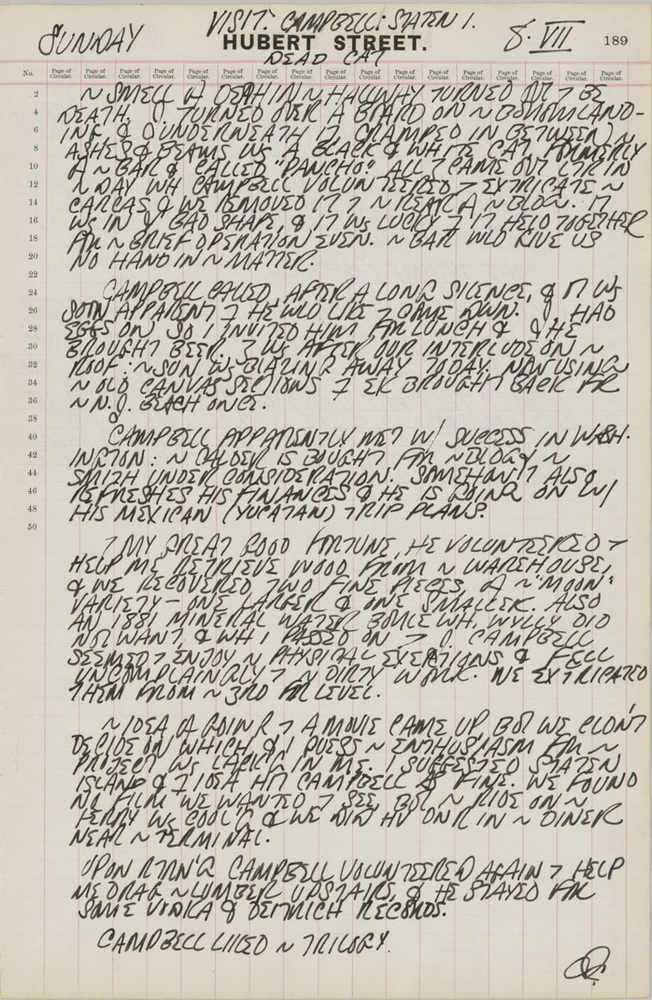 VISIT: CAMPBELL: STATEN I.
SUNDAY 8·VII 189
HUBERT STREET.
DEAD CAT
No. Page of Circular. Page of Circular. Page of Circular. Page of Circular. Page of Circular. Page of Circular. Page of Circular. Page of Circular. Page of Circular. Page of Circular. Page of Circular. Page of Circular. Page of Circular. Page of Circular. Page of Circular. Page of Circular. Page of Circular.
2 ~ SMELL OF DEATH IN ~ HALLWAY TURNED OUT 7 BE
4 DEATH. I TURNED OVER A BOARD ON ~ BOTTOM LAND-
6 ING & UNDERNEATH IT CRAMPED IN BETWEEN ~
8 ASHES & BEAMS WS A BLACK & WHITE CAT FORMERLY
10 OF ~ BAR & CALLED "PANCHO". ALL 7 CAME OUT LTR IN
12 ~ DAY WH CAMPBELL VOLUNTEERED 7 EXTRICATE ~
14 CARCAS & WE REMOVED IT 7 ~ REAR OF ~ BLDG. IT
16 WS IN BAD SHAPE, & IT WS LUCKY 7 IT HELD TOGETHER
18 FR ~ BRIEF OPERATION EVEN. ~ BAR WLD GIVE US
20 NO HAND IN ~ MATTER.
22
24 CAMPBELL CALLED, AFTER A LONG SILENCE, & IT WS
26 SOON APPARENT 7 HE WLD LIKE 7 COME DWN. I HAD
28 EGGS ON SO I INVITED HIM FR LUNCH & HE
30 BROUGHT BEER. 7 WS AFTER OUR INTERLUDE ON ~
32 ROOF: ~ SUN WS BLAZING AWAY TODAY. NOW USING
34 ~ OLD CANVAS SECTIONS 7 EK BROUGHT BACK FR
36 ~ N.J. BEACH ONCE.
38
40 CAMPBELL APPARENTLY MET W/ SUCCESS IN WASH-
42 INGTON: ~ CALDER IS BOUGHT FR ~ BLDG & ~
44 SMITH UNDER CONSIDERATION. SOMEHOW IT ALSO
46 REFRESHES HIS FINANCES & HE IS GOING ON W/
48 HIS MEXICAN (YUCATAN) TRIP PLANS.
50
7 MY GREAT GOOD FORTUNE, HE VOLUNTEERED 7
HELP ME RETRIEVE WOOD FROM ~ WAREHOUSE,
& WE RECOVERED TWO FINE PIECES, OF ~ "MOON"
VARIETY – ONE LARGER & ONE SMALLER. ALSO
AN 1881 MINERAL WATER BOTTLE WH. WYLLY DID
NOT WANT, & WH I PASSED ON 7 J. CAMPBELL
SEEMED 7 ENJOY ~ PHYSICAL EXERTIONS & FELL
UNCOMPLAININGLY 7 ~ DIRTY WORK. WE EXTRICATED
THEM FROM ~ 3RD FR LEVEL.
~ IDEA OF GOING 7 A MOVIE CAME UP BUT WE CLDN'T
DECIDE ON WHICH, & I GUESS ~ ENTHUSIASM FR ~
PROJECT WS LACK'G IN ME. I SUGGESTED STATEN
ISLAND & 7 IDEA HIT CAMPBELL AS FINE. WE FOUND
NO FILM WE WANTED 7 SEE, BUT ~ RIDE ON ~
FERRY WS COOL'G & WE DID HV DNR IN ~ DINER
NEAR ~ TERMINAL.
UPON RTRN'G CAMPBELL VOLUNTEERED AGAIN 7 HELP
ME DRAG ~ LUMBER UPSTAIRS, & HE STAYED FR
SOME VODKA & DEITRICH RECORDS.
CAMPBELL LIKED ~ TRILOGY.